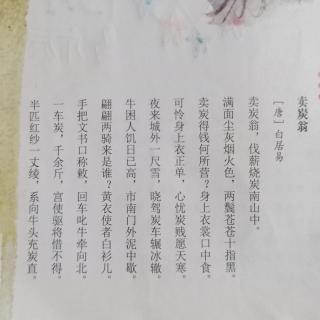 卖炭翁
［唐］白居易
卖炭翁，伐薪烧炭南山中。
满面尘灰烟火色，两鬓苍苍十指黑。
卖炭得钱何所营？身上衣裳口中食。
可怜身上衣正单，心忧炭贱愿天寒。
夜来城外一尺雪，晓驾炭车辗冰辙。
牛困人饥日已高，市南门外泥中歇。
翩翩两骑来是谁？黄衣使者白衫儿。
手把文书口称敕，回车叱牛牵向北。
一车炭，千余斤，宫使驱将惜不得。
半匹红纱一丈绫，系向牛头充炭直。